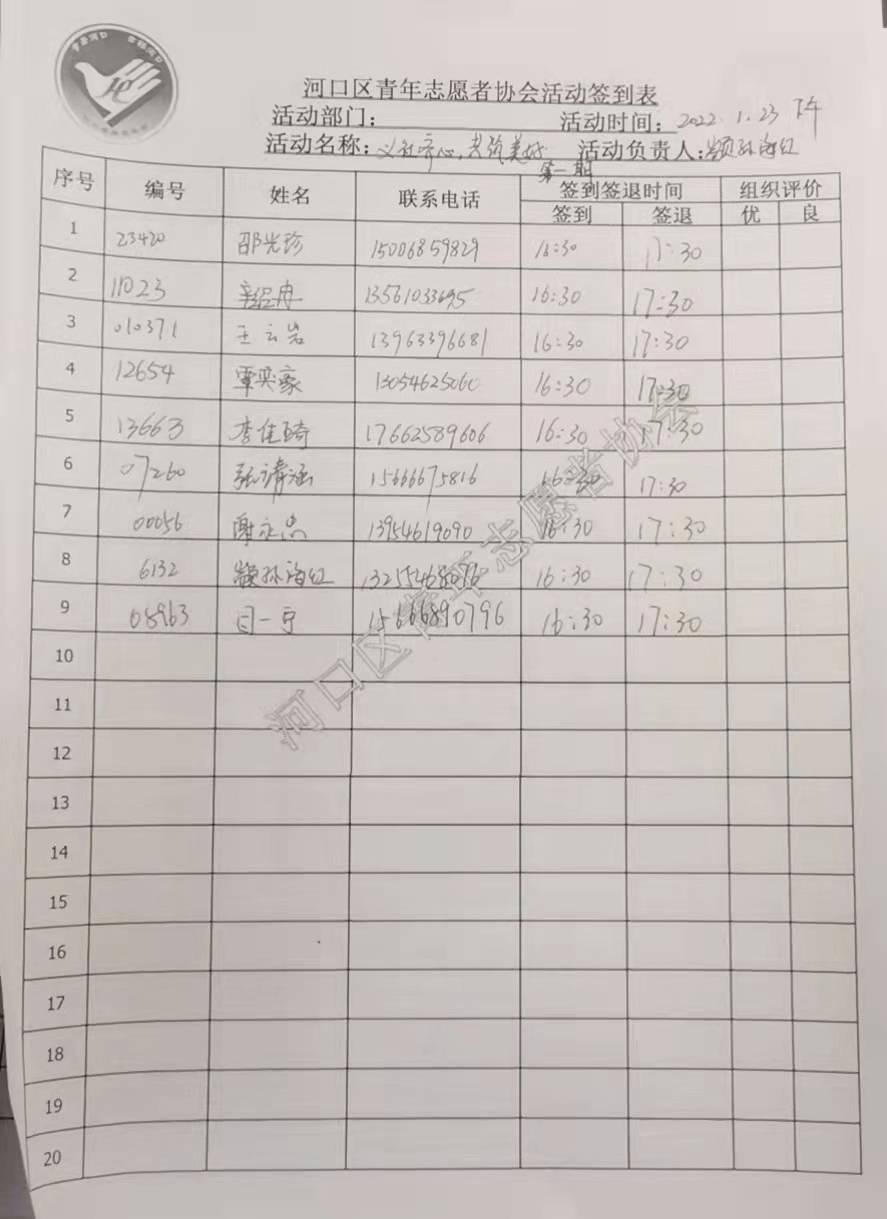 河口区青年志愿者协会活动签到表
活动部门: 活动时间: 2022.1.23 下午
活动名称: 义社齐心,共筑美好 第一期 活动负责人: 颛孙海红
序号 编号 姓名 联系电话 签到签退时间 组织评价
签到 签退 优 良
1 23420 邵光珍 15006859829 16:30 17:30
2 11023 13561033695 16:30 17:30
3 010371 王云岩 13963396681 16:30 17:30
4 12654 覃奕豪 13054625060 16:30 17:30
5 13663 李佳琦 17662589606 16:30 17:30
6 07260 张清涵 15666675816 16:30 17:30
7 00056 谢永忠 13954619090 16:30 17:30
8 6132 颛孙海红 13255468076 16:30 17:30
9 08963 闫一宁 15666890796 16:30 17:30
10
11
12
13
14
15
16
17
18
19
20
河口区青年志愿者协会